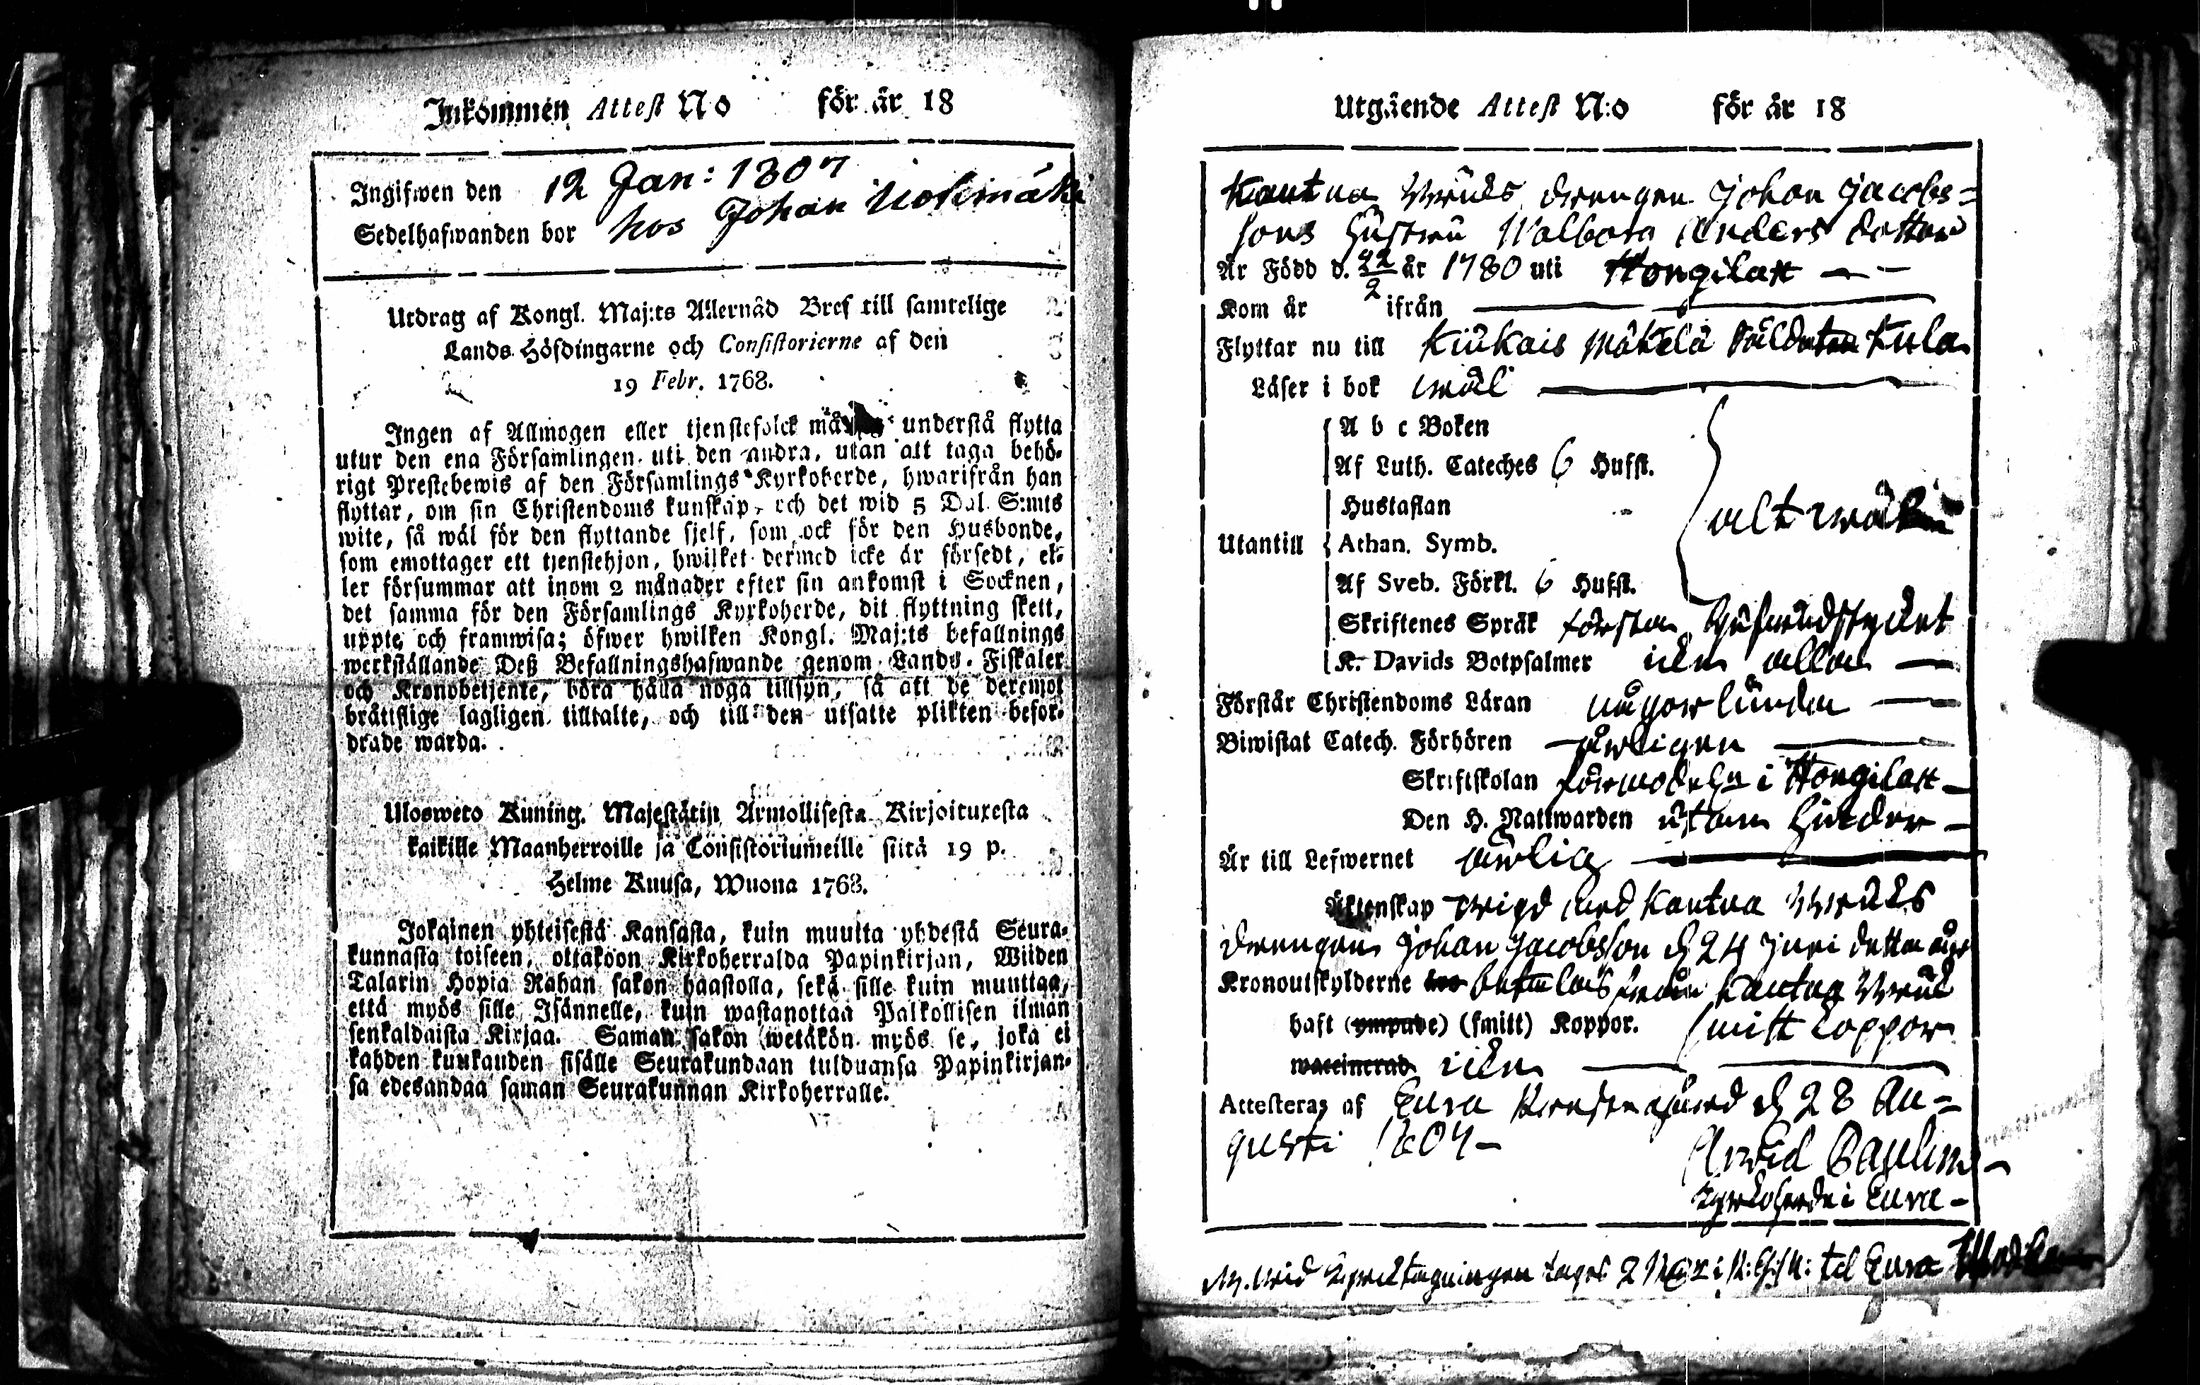 Inkommen Attest No för år 18
Ingifwen den 12 Jan: 1807
Sedelhafwanden bor hos Johan Uotimäki
Utdrag af Kongl. Maj:ts Allernåd Bref till samtelige
Lands Höfdingarne och Consistorierne af den
19 Febr. 1768.
Ingen af Allmogen eller tjenstefolck må understå flytta
utur den ena Församlingen uti den andra, utan att taga behö-
rigt Prestebewis af den Församlings Kyrkoherde, hwarifrån han
flyttar, om sin Christendoms kunskap, och det wid 5 Dal. S:mts
wite, så wäl för den flyttande sjelf, som ock för den Husbonde,
som emottager ett tjenstehjon, hwilket dermed icke är försedt, el-
ler försummar att inom 2 månader efter sin ankomst i Socknen,
det samma för den Församlings Kyrkoherde, dit flyttning skett,
uppte och framwisa; öfwer hwilken Kongl. Maj:ts befallnings
werkställande Deß Befallningshafwande genom Lands-Fiskaler
och Kronobetjente, böra hålla noga tillsyn, så att de deremot
bråttslige lagligen tilltalte, och till den utsatte plikten befor-
drade warda.
Ulosweto Kuning. Majestätin Armollisesta Kirjoituxesta
kaikille Maanherroille ja Consistoriumeille siitä 19 p.
Helme Kuusa, Wuona 1768.
Jokainen yhteisestä Kansasta, kuin muutta yhdestä Seura-
kunnasta toiseen, ottakoon Kirkoherralda Papinkirjan, Wiiden
Talarin Hopia Rahan sakon haastolla, sekä sille kuin muuttaa,
että myös sille Isännelle, kuin wastanottaa Palkollisen ilman
senkaldaista Kirjaa. Saman sakon wetäkön myös se, joka ei
kahden kuukauden sisälle Seurakundaan tulduansa Papinkirjan-
sa edesandaa saman Seurakunnan Kirkoherralle.
Utgående Attest N:o för år 18
Kautua drengen Johan Jacobs-
sons hustru Walborg Anders dotter
Är Född d. 22/2 år 1780 uti Hongilax
Kom år ifrån
Flyttar nu till Kiukais Mäkelä Kula
Läser i bok wäl
A b c Boken
Af Luth. Cateches 6 Hufst.
Hustaflan
Utantill Athan. Symb. alt wäl
Af Sveb. Förkl. 6 Hufst.
Skriftenes Språk förstan hufwudstycket
K. Davids Botpsalmer icke alla
Förstår Christendoms Läran någorlunda
Biwistat Catech. Förhören
Skriftskolan förmodeln i Hongilax
Den H. Nattwarden utan hinder
Är till Lefwernet ärlig
Äktenskap wigd med Kautua
drengen Johan Jacobsson d 24 Juni detta år
Kronoutskylderne betalas från Kautua
haft (ympade) (smitt) Koppor. smitt koppor
waccinerad icke
Attesteras af Eura d 28 Au-
gusti 1804
Arwid Paulin
Kyrkoherde i Eura